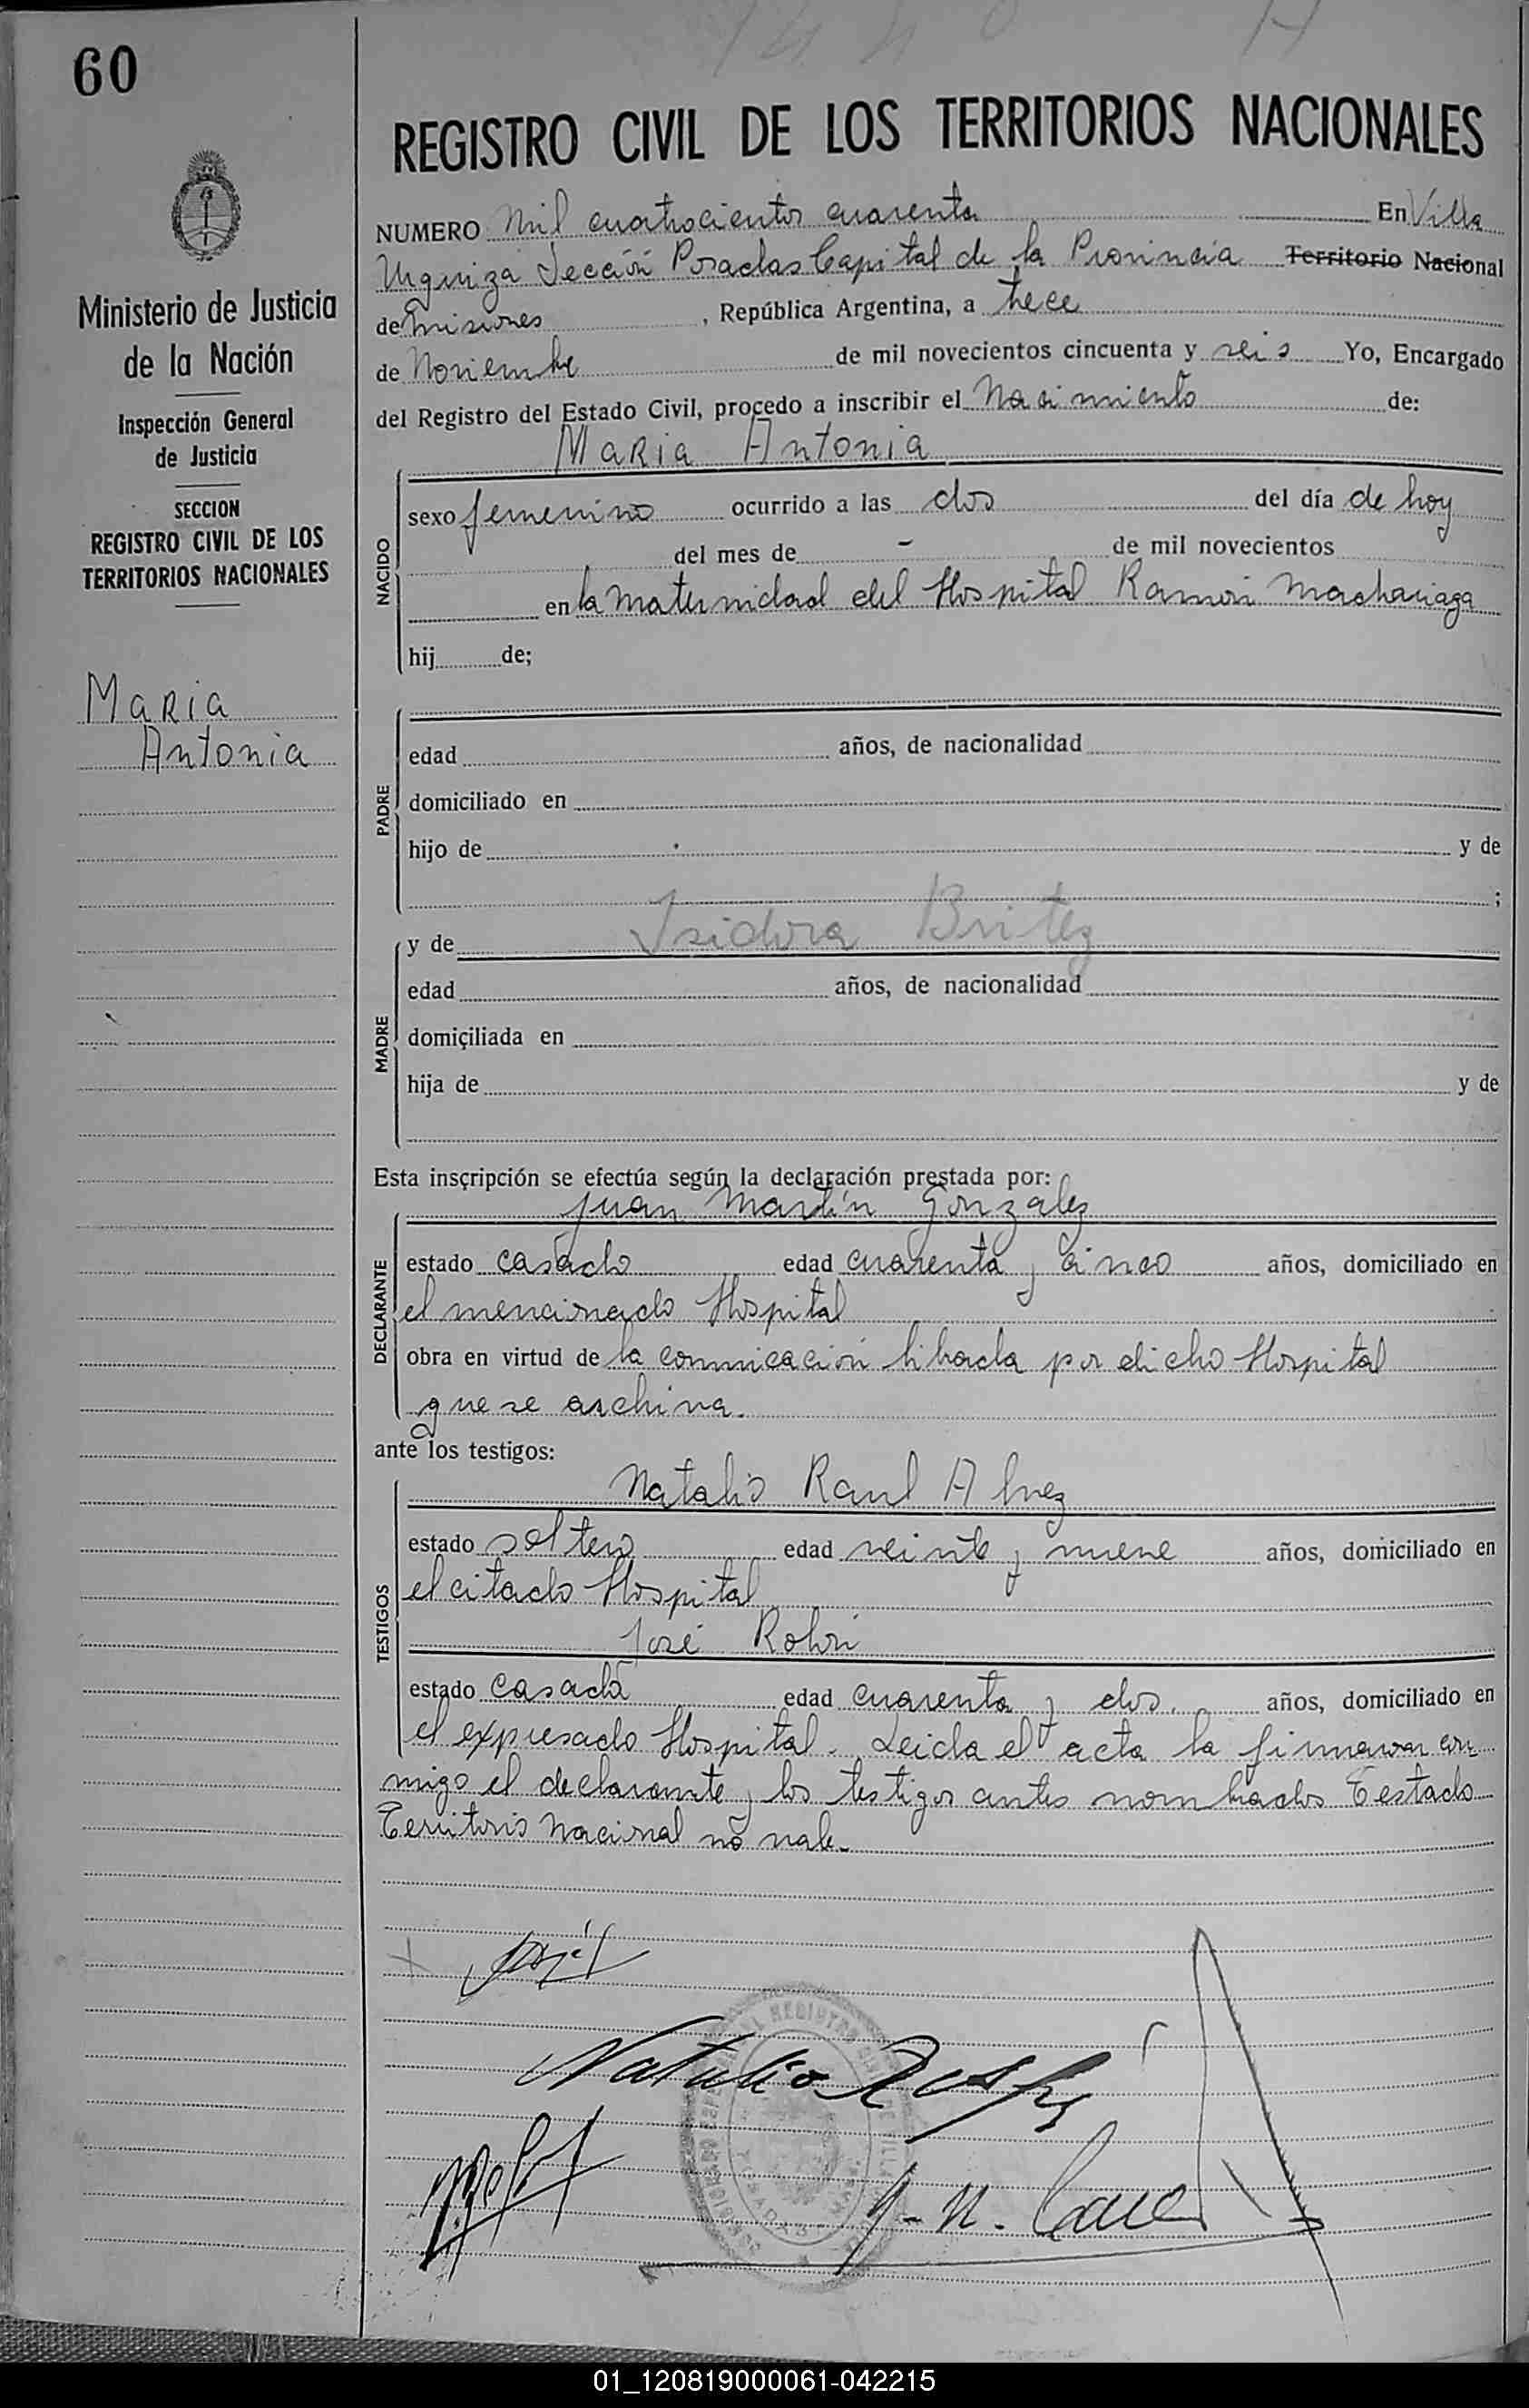 60
REGISTRO CIVIL DE LOS TERRITORIOS NACIONALES
NUMERO Mil cuatrocientos cuarenta En Villa
Urquiza Sección Posadas Capital de la Provincia Territorio Nacional
de Misiones , República Argentina, a trece
de Noviembre de mil novecientos cincuenta y seis Yo, Encargado
del Registro del Estado Civil, procedo a inscribir el Nacimiento de:
Maria Antonia
NACIDO
sexo femenino ocurrido a las dos del día de hoy
del mes de - de mil novecientos
en la Maternidad del Hospital Ramón Madariaga
hij de;
PADRE
edad años, de nacionalidad
domiciliado en
hijo de y de
;
MADRE
y de Isidora Britez
edad años, de nacionalidad
domiciliada en
hija de y de
Esta inscripción se efectúa según la declaración prestada por:
Juan Martín Gonzalez
DECLARANTE
estado casado edad cuarenta y cinco años, domiciliado en
el mencionado Hospital
obra en virtud de la comunicación librada por dicho Hospital
que se archiva.
ante los testigos:
Natalio Raul
TESTIGOS
estado soltero edad veinte y nueve años, domiciliado en
el citado Hospital
José
estado casado edad cuarenta y dos. años, domiciliado en
el expresado Hospital. Leida el acta la firmaron con
migo el declarante y los testigos antes nombrados Testado
Territorio Nacional no vale.
Ministerio de Justicia
de la Nación
Inspección General
de Justicia
SECCION
REGISTRO CIVIL DE LOS
TERRITORIOS NACIONALES
Maria
Antonia
Natalio
01_120819000061-042215